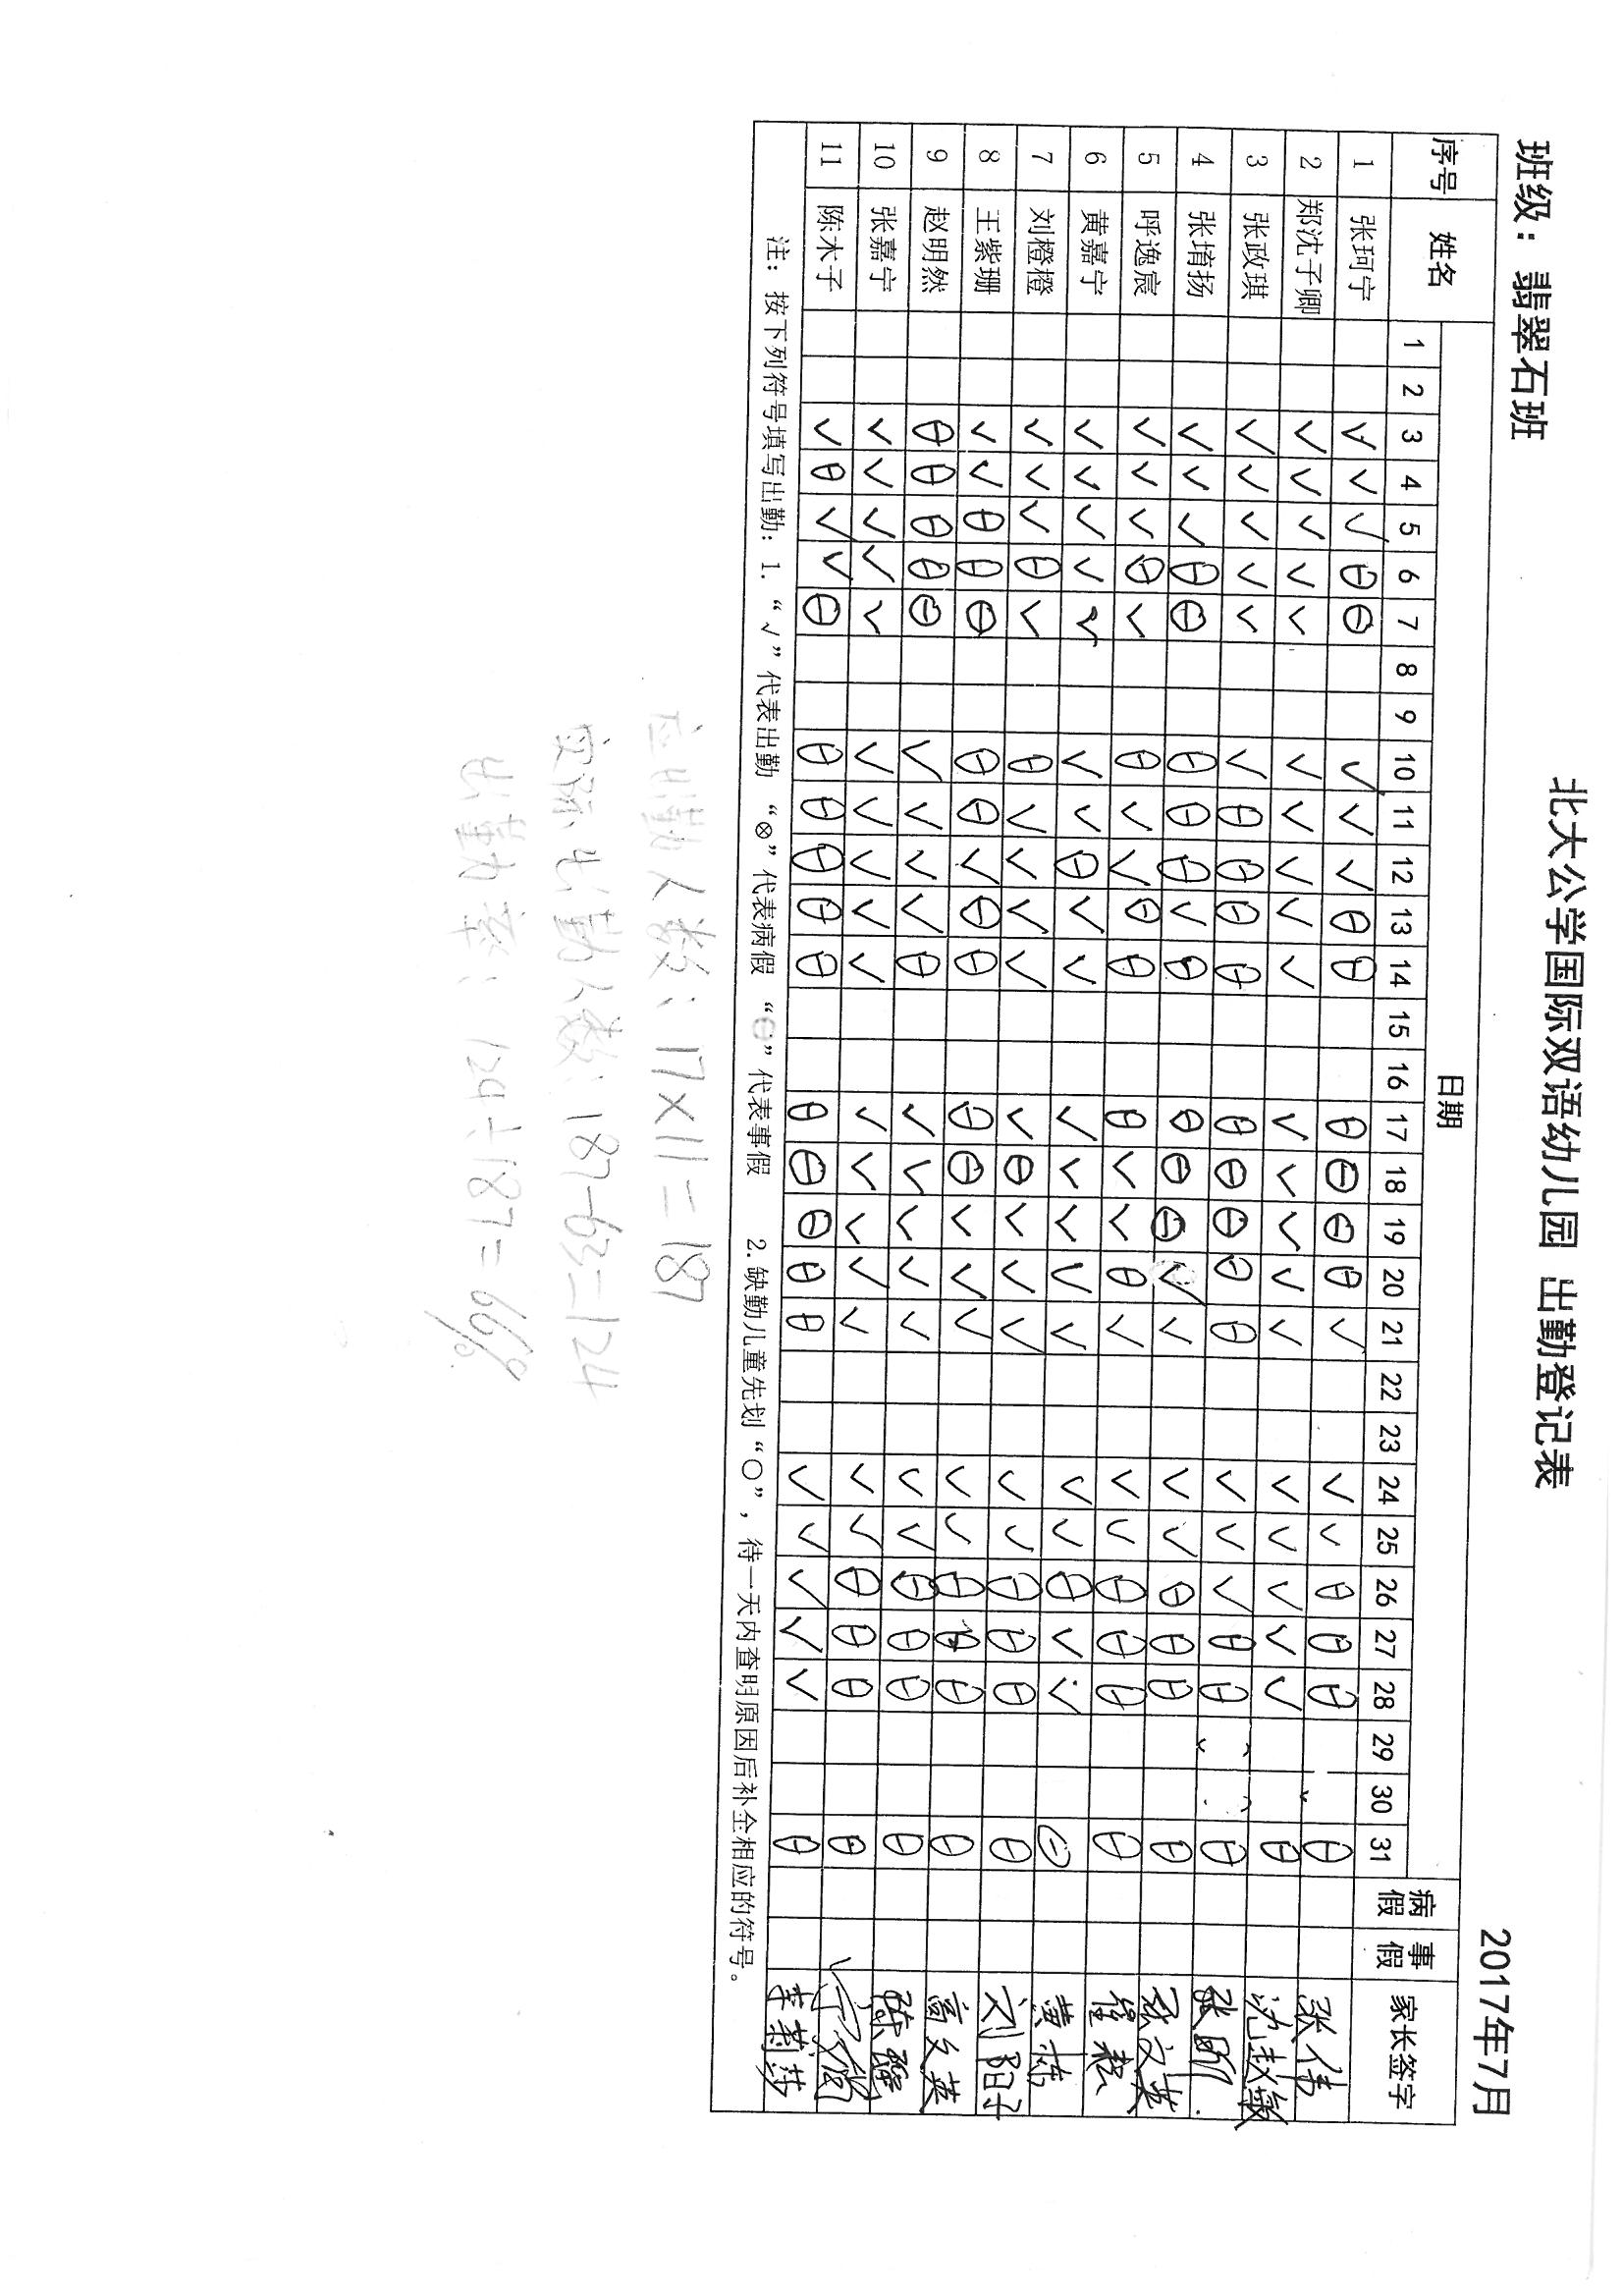 北大公学国际双语幼儿园 出勤登记表
班级：翡翠石班 2017年7月
序号 姓名 日期 病假 事假 家长签字
1 2 3 4 5 6 7 8 9 10 11 12 13 14 15 16 17 18 19 20 21 22 23 24 25 26 27 28 29 30 31
1 张珂宁 √ √ √ ⊖ ⊖ √ √ √ ⊖ ⊖ ⊖ ⊖ ⊖ ⊖ √ √ √ ⊖ ⊖ ⊖ ⊖ 张伟
2 郑沈子卿 √ √ √ √ √ √ √ √ √ √ √ √ √ √ √ √ √ √ √ √ ⊖
3 张政琪 √ √ √ √ √ √ ⊖ ⊖ ⊖ ⊖ ⊖ ⊖ ⊖ ⊖ ⊖ √ √ √ ⊖ ⊖ ⊖
4 张堉扬 √ √ √ ⊖ ⊖ ⊖ ⊖ ⊖ √ ⊖ ⊖ ⊖ ⊖ √ √ √ √ ⊖ ⊖ ⊖ ⊖ 张文英
5 呼逸宸 √ √ √ ⊖ √ ⊖ √ √ ⊖ ⊖ ⊖ √ √ ⊖ √ √ √ ⊖ ⊖ ⊖ ⊖
6 黄嘉宁 √ √ √ √ √ √ √ ⊖ √ √ √ √ √ √ √ √ √ ⊖ √ √ ⊖ 黄栋
7 刘橙橙 √ √ √ ⊖ √ ⊖ √ √ √ √ √ ⊖ √ √ √ √ √ ⊖ ⊖ ⊖ ⊖
8 王紫珊 √ √ ⊖ ⊖ ⊖ ⊖ ⊖ √ ⊖ ⊖ ⊖ ⊖ √ √ √ √ √ ⊖ ⊖ ⊖ ⊖ 高文英
9 赵明然 ⊖ ⊖ ⊖ ⊖ ⊖ √ √ √ √ ⊖ √ √ √ √ √ √ √ ⊖ ⊖ ⊖ ⊖ 陈强
10 张嘉宁 √ √ √ √ √ √ √ √ √ √ √ √ √ √ √ √ √ ⊖ ⊖ ⊖ ⊖
11 陈木子 √ ⊖ √ √ ⊖ ⊖ ⊖ ⊖ ⊖ ⊖ ⊖ ⊖ ⊖ ⊖ ⊖ √ √ √ √ √ ⊖ 李莉莎
注：按下列符号填写出勤：1. “√”代表出勤 “⊗”代表病假 “⊖”代表事假 2.缺勤儿童先划“○”，待一天内查明原因后补全相应的符号。
应出勤人数：17×11=187
实际出勤人数：187-63=124
出勤率：124÷187=66%